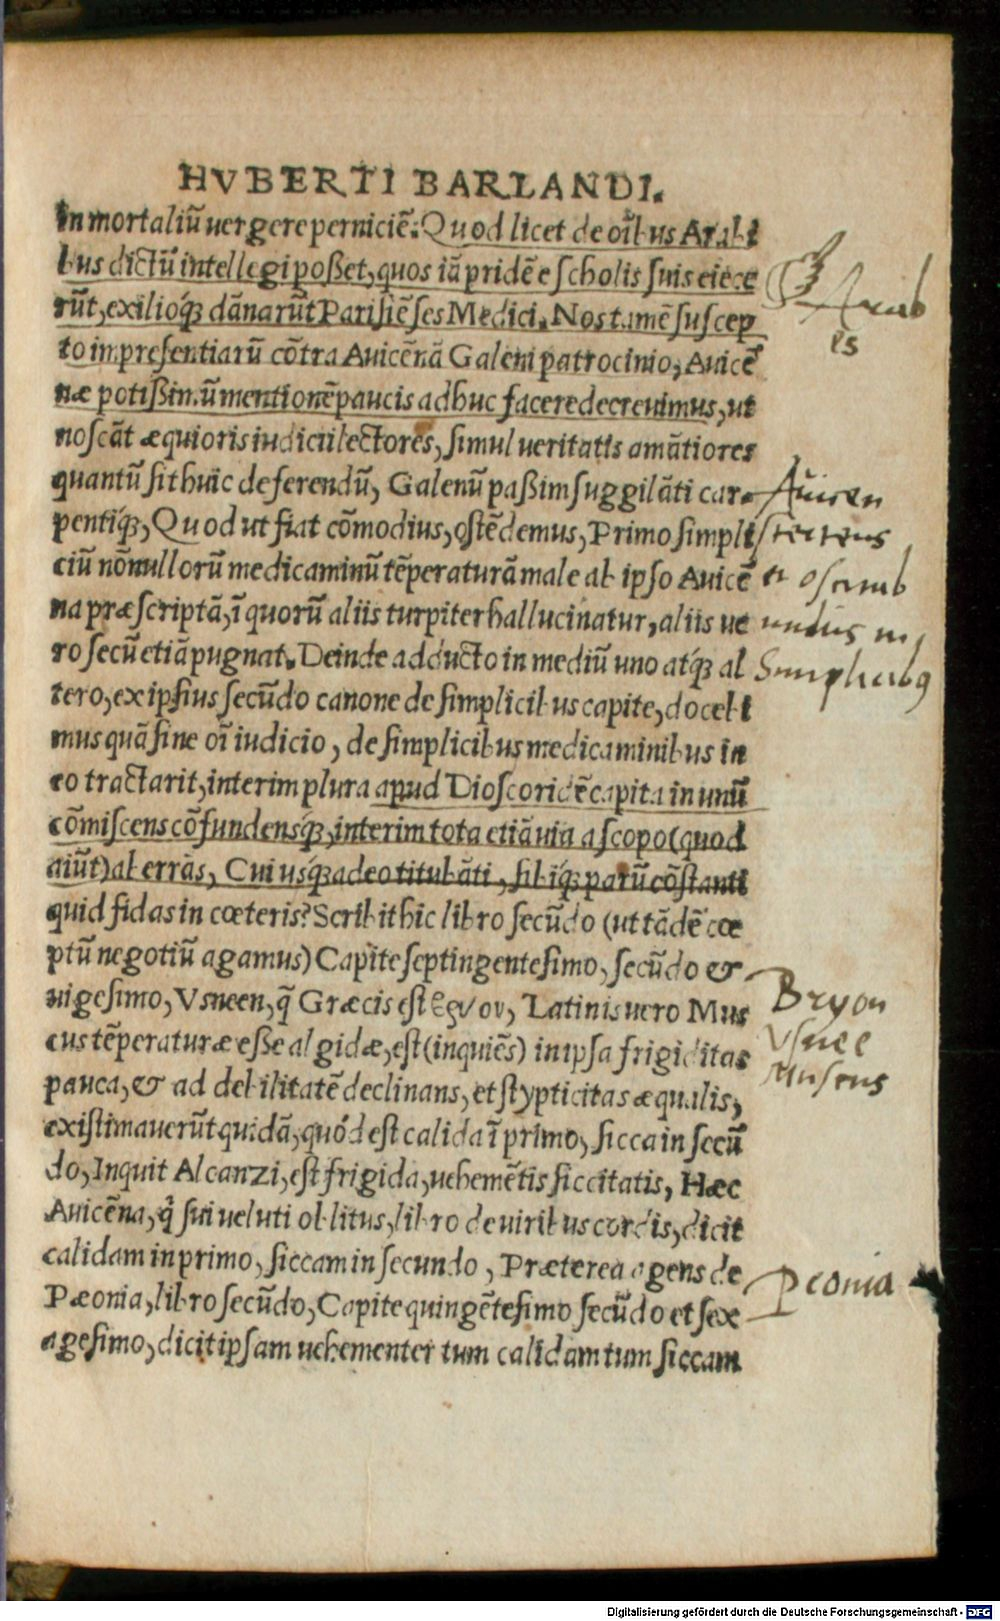 HVBERTI BARLANDI.
in mortaliũ uergere perniciẽ. Quod licet de oĩbus Arabi
bus dictũ intellegi poßet, quos iã pridẽ e scholis suis eiece
rũt, exilioq́; dãnarũt Parisiẽses Medici. Nos tamẽ suscep
to in presentiarũ cõtra Auicẽnã Galeni patrocinio, Auicẽ
næ potißimũ mentionẽ paucis adhuc facere decreuimus, ut
noscãt æquioris iudicii lectores, simul ueritatis amãtiores
quantũ sit huic deferendũ, Galenũ paßim suggilãti car-
pentiq́;, Quod ut fiat cõmodius, ostẽdemus, Primo simpli
ciũ nõnullorũ medicaminũ tẽperaturã male ab ipso Auicẽ
na præscriptã, ĩ quorũ aliis turpiter hallucinatur, aliis ue
ro secũ etiã pugnat. Deinde adducto in mediũ uno atq́; al
tero, ex ipsius secũdo canone de simplicibus capite, docebi
mus quã sine oĩ iudicio, de simplicibus medicaminibus in
eo tractarit, interim plura apud Dioscoridẽ capita in unũ
cõmiscens cõfundensq́;, interim tota etiã uia a scopo (quod
aiũt) aberrãs, Cui usq́; adeo titubãti, sibiq́; parũ cõstanti
quid fidas in cœteris? Scribit hic libro secũdo (ut tãdẽ cœ
ptũ negotiũ agamus) Capite septingentesimo, secũdo &
uigesimo, Vsneen, q̃ Græcis est βρύον, Latinis uero Mus
cus tẽperaturæ eße algidæ, est (inquiẽs) in ipsa frigiditas
pauca, & ad debilitatẽ declinans, et stypticitas æqualis,
existimauerũt quidã, quód est calida ĩ primo, sicca in secũ
do, Inquit Alcanzi, est frigida, uehemẽtis siccitatis, Hæc
Auicẽna, q̃ sui ueluti oblitus, libro de uiribus cordis, dicit
calidam in primo, siccam in secundo, Præterea agens de
Pæonia, libro secũdo, Capite quingẽtesimo secũdo et sex
agesimo, dicit ipsam uehementer tum calidam tum siccam
Arab
es
Auicen
in
Simplicibus
Bryon
Vsnee
Muscus
Peonia
Digitalisierung gefördert durch die Deutsche Forschungsgemeinschaft - DFG